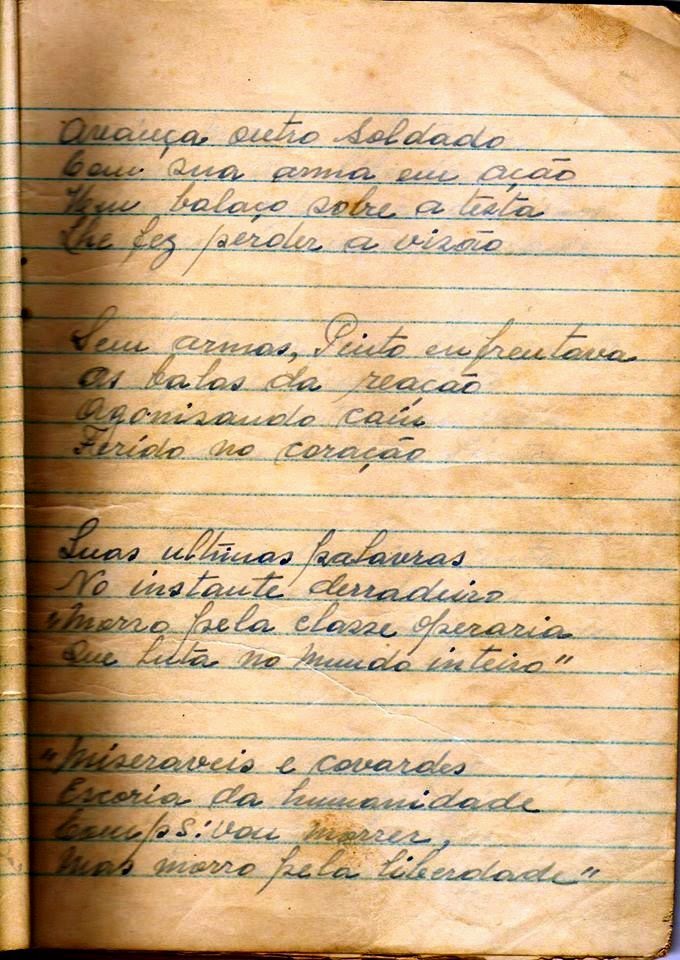 Avança outro soldado
Com sua arma em ação
Hum balaço sobre a testa
Lhe fez perder a visão
Sem armas, Pinto enfrentava
As balas da reação
Agonisando caíu
Ferido no coração
Suas ultimas palavras
No instante derradeiro
"Morro pela classe operaria
Que luta no mundo inteiro"
"Miseraveis e covardes
Escoria da humanidade
Comps: vou morrer,
Mas morro pela liberdade"